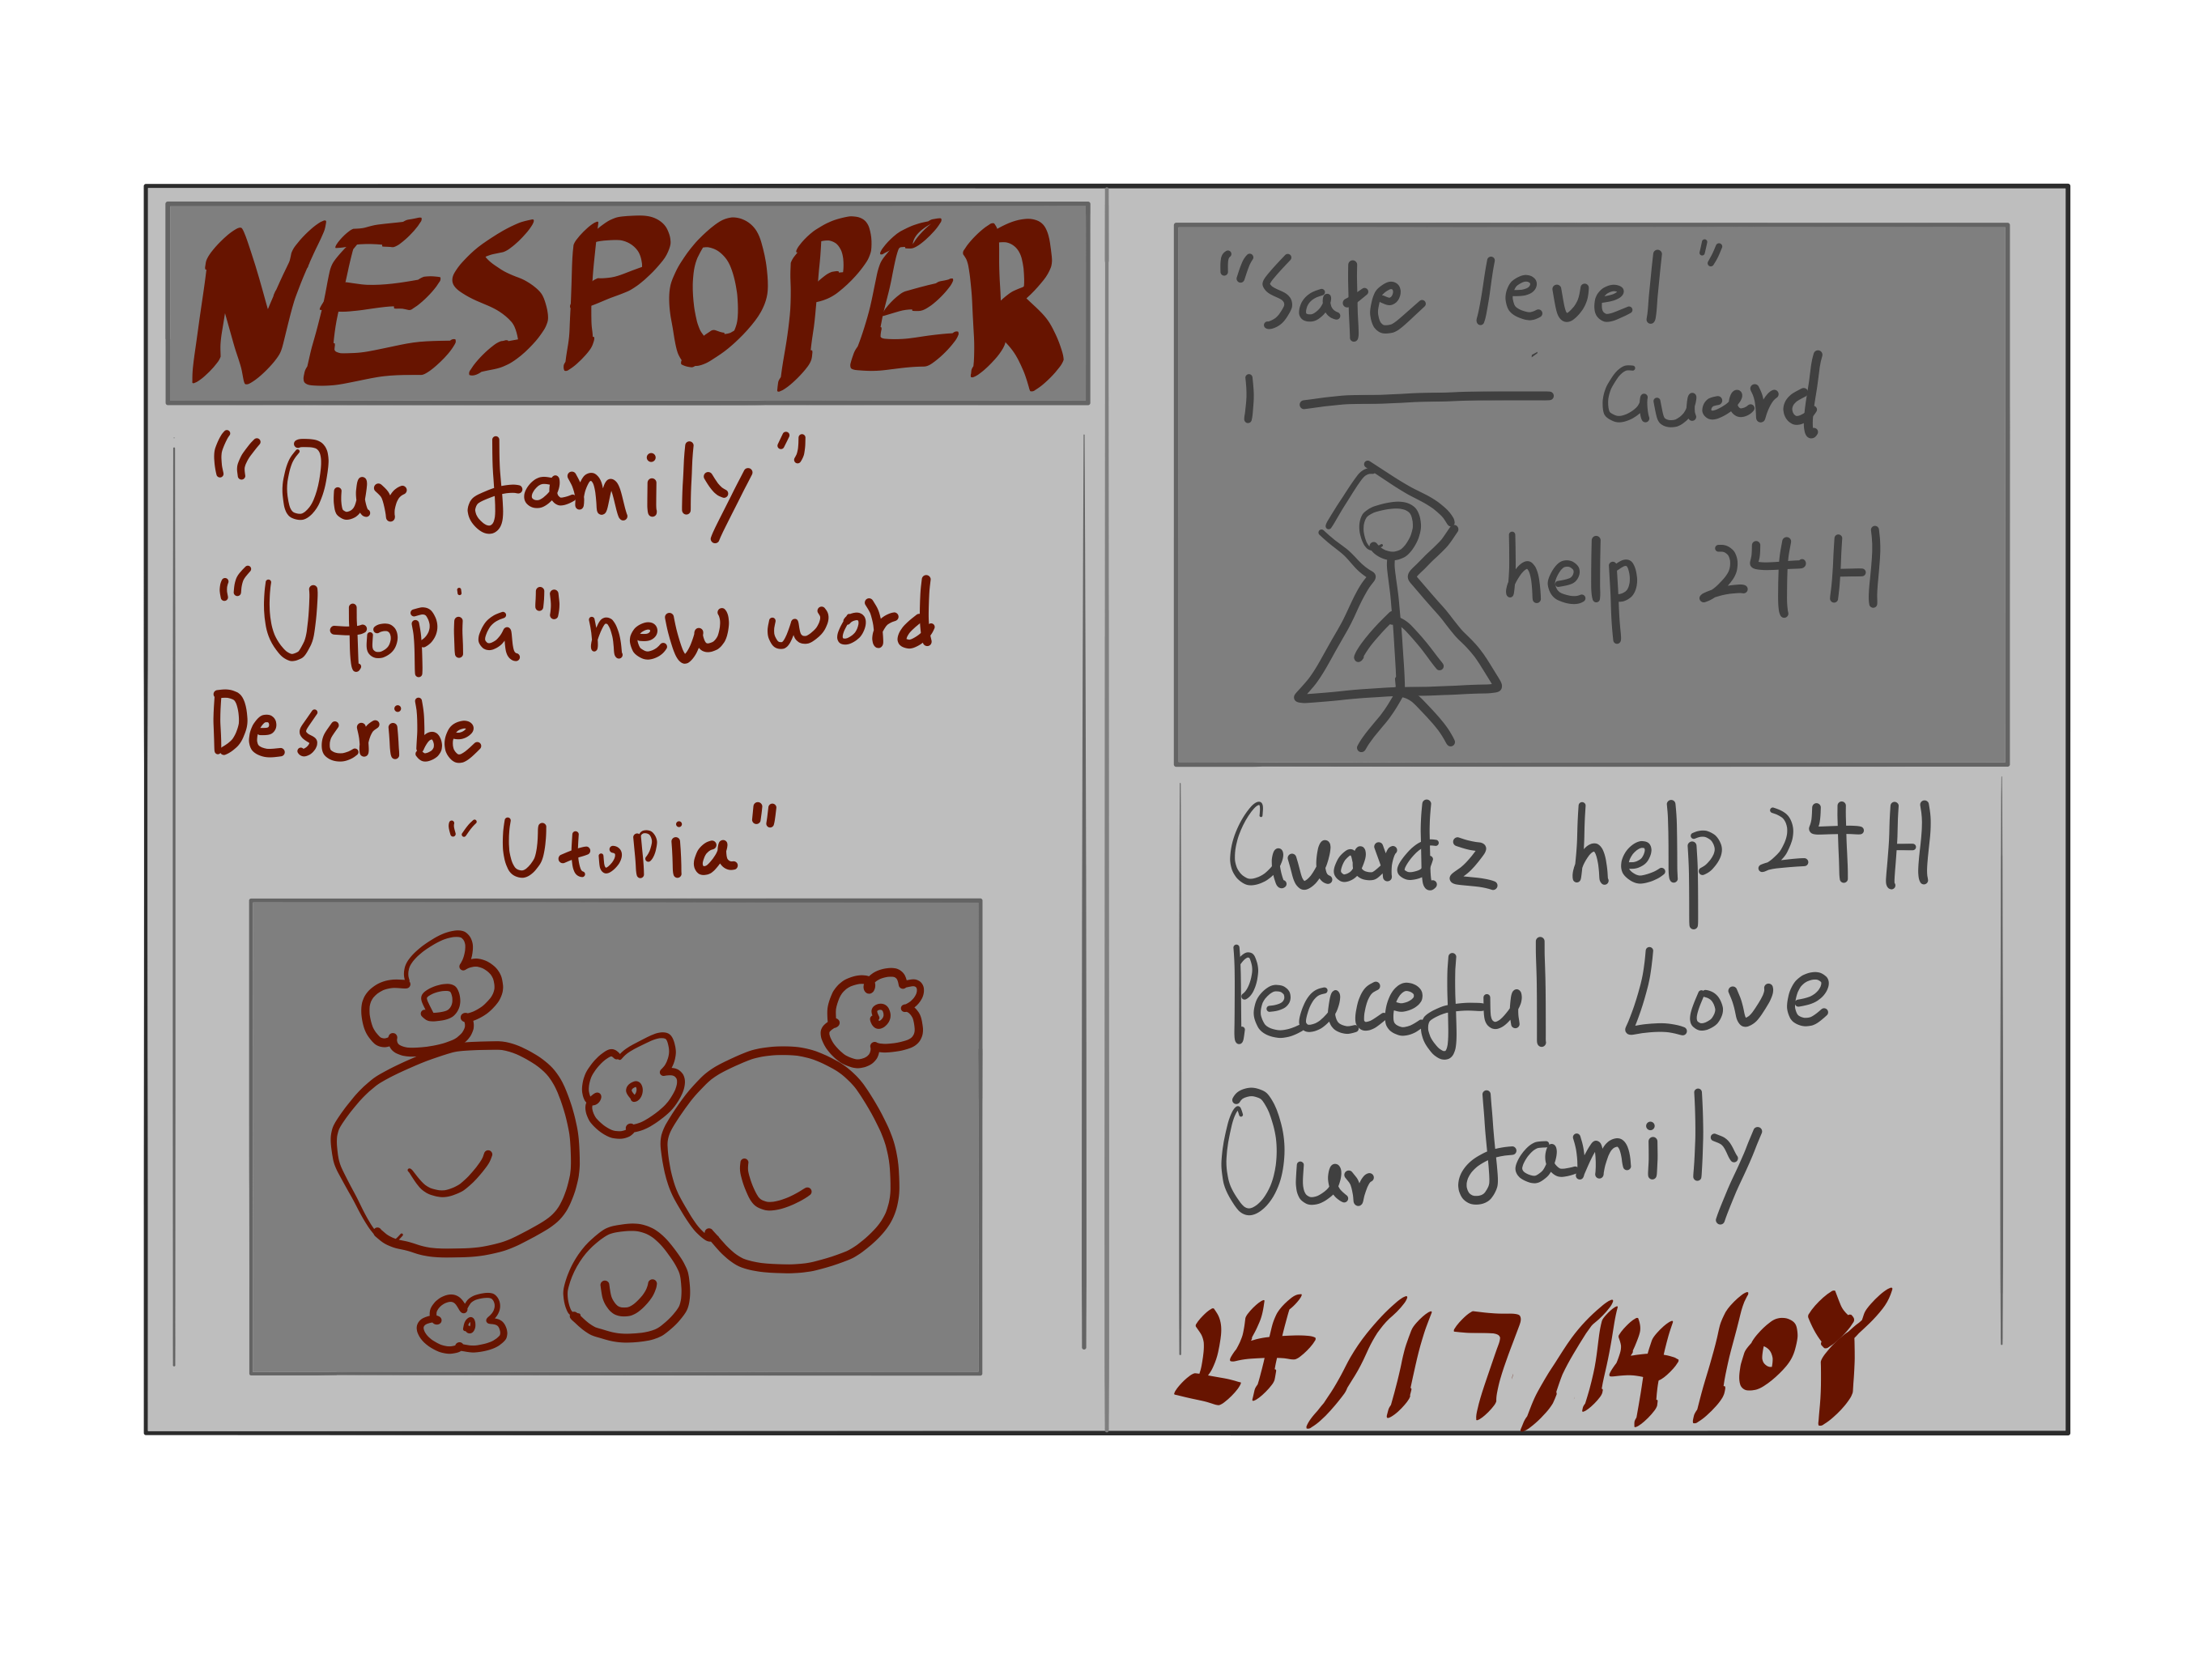 NESPOPER
“Our family”
“Utopia" new word
Describe
“Utopia"
“Sate level”
1 — Guard
help 24H
Guardz help 24H
Peaceful Love
Our family
24/17/1410Y